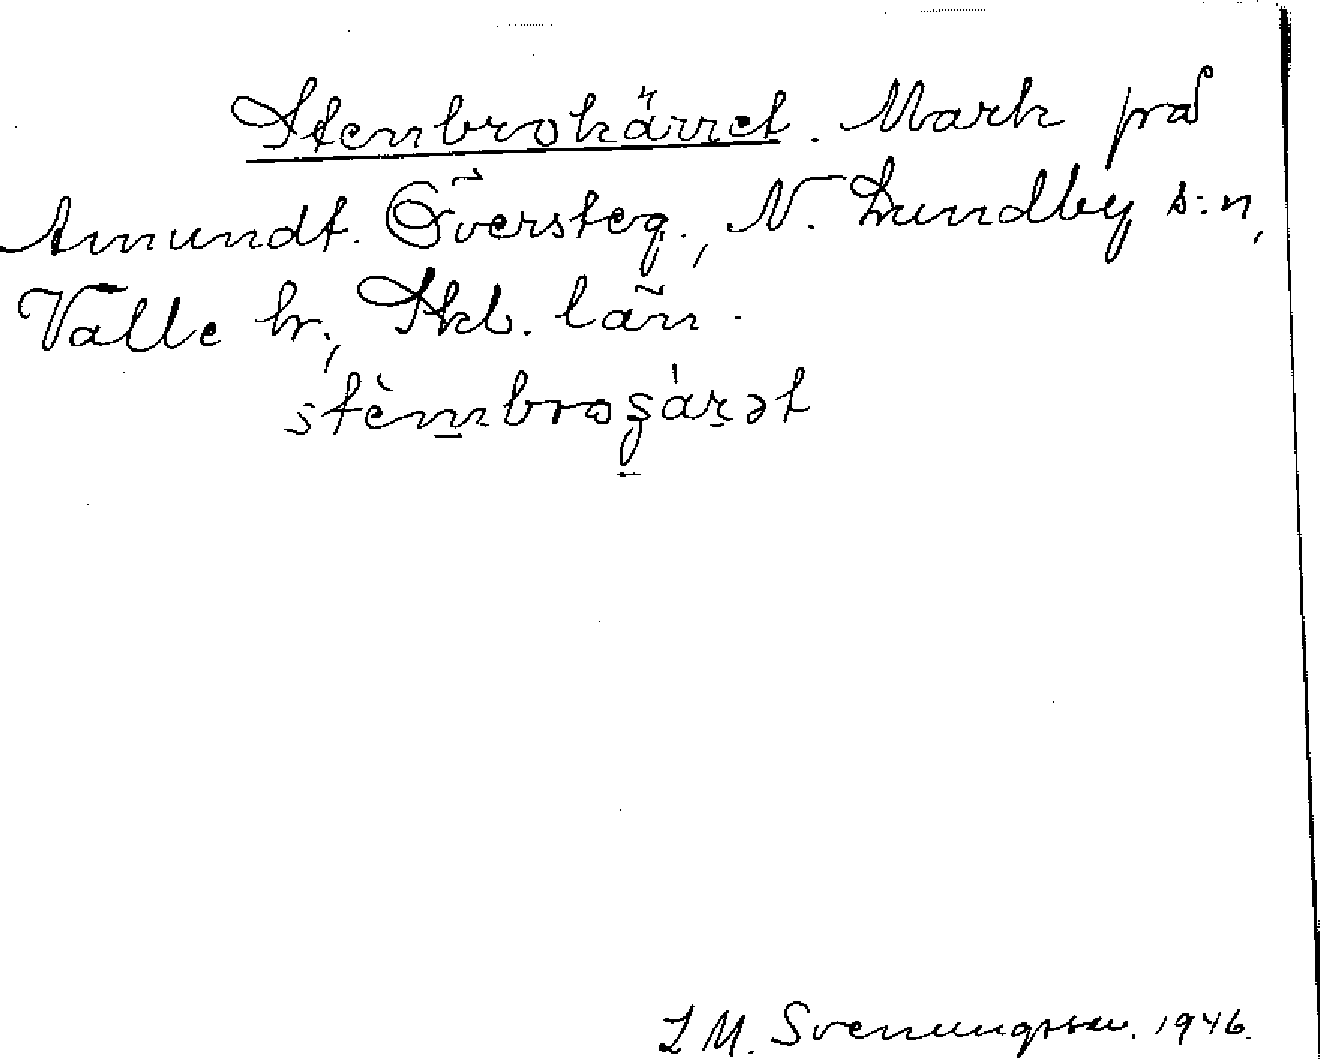 Stenbrokärret. Mark på
Amundt. Översteg., N. Lundby s:n,
Valle hr., Skb. län.
stèmbroʂárət
L M. Svenungsson. 1946.